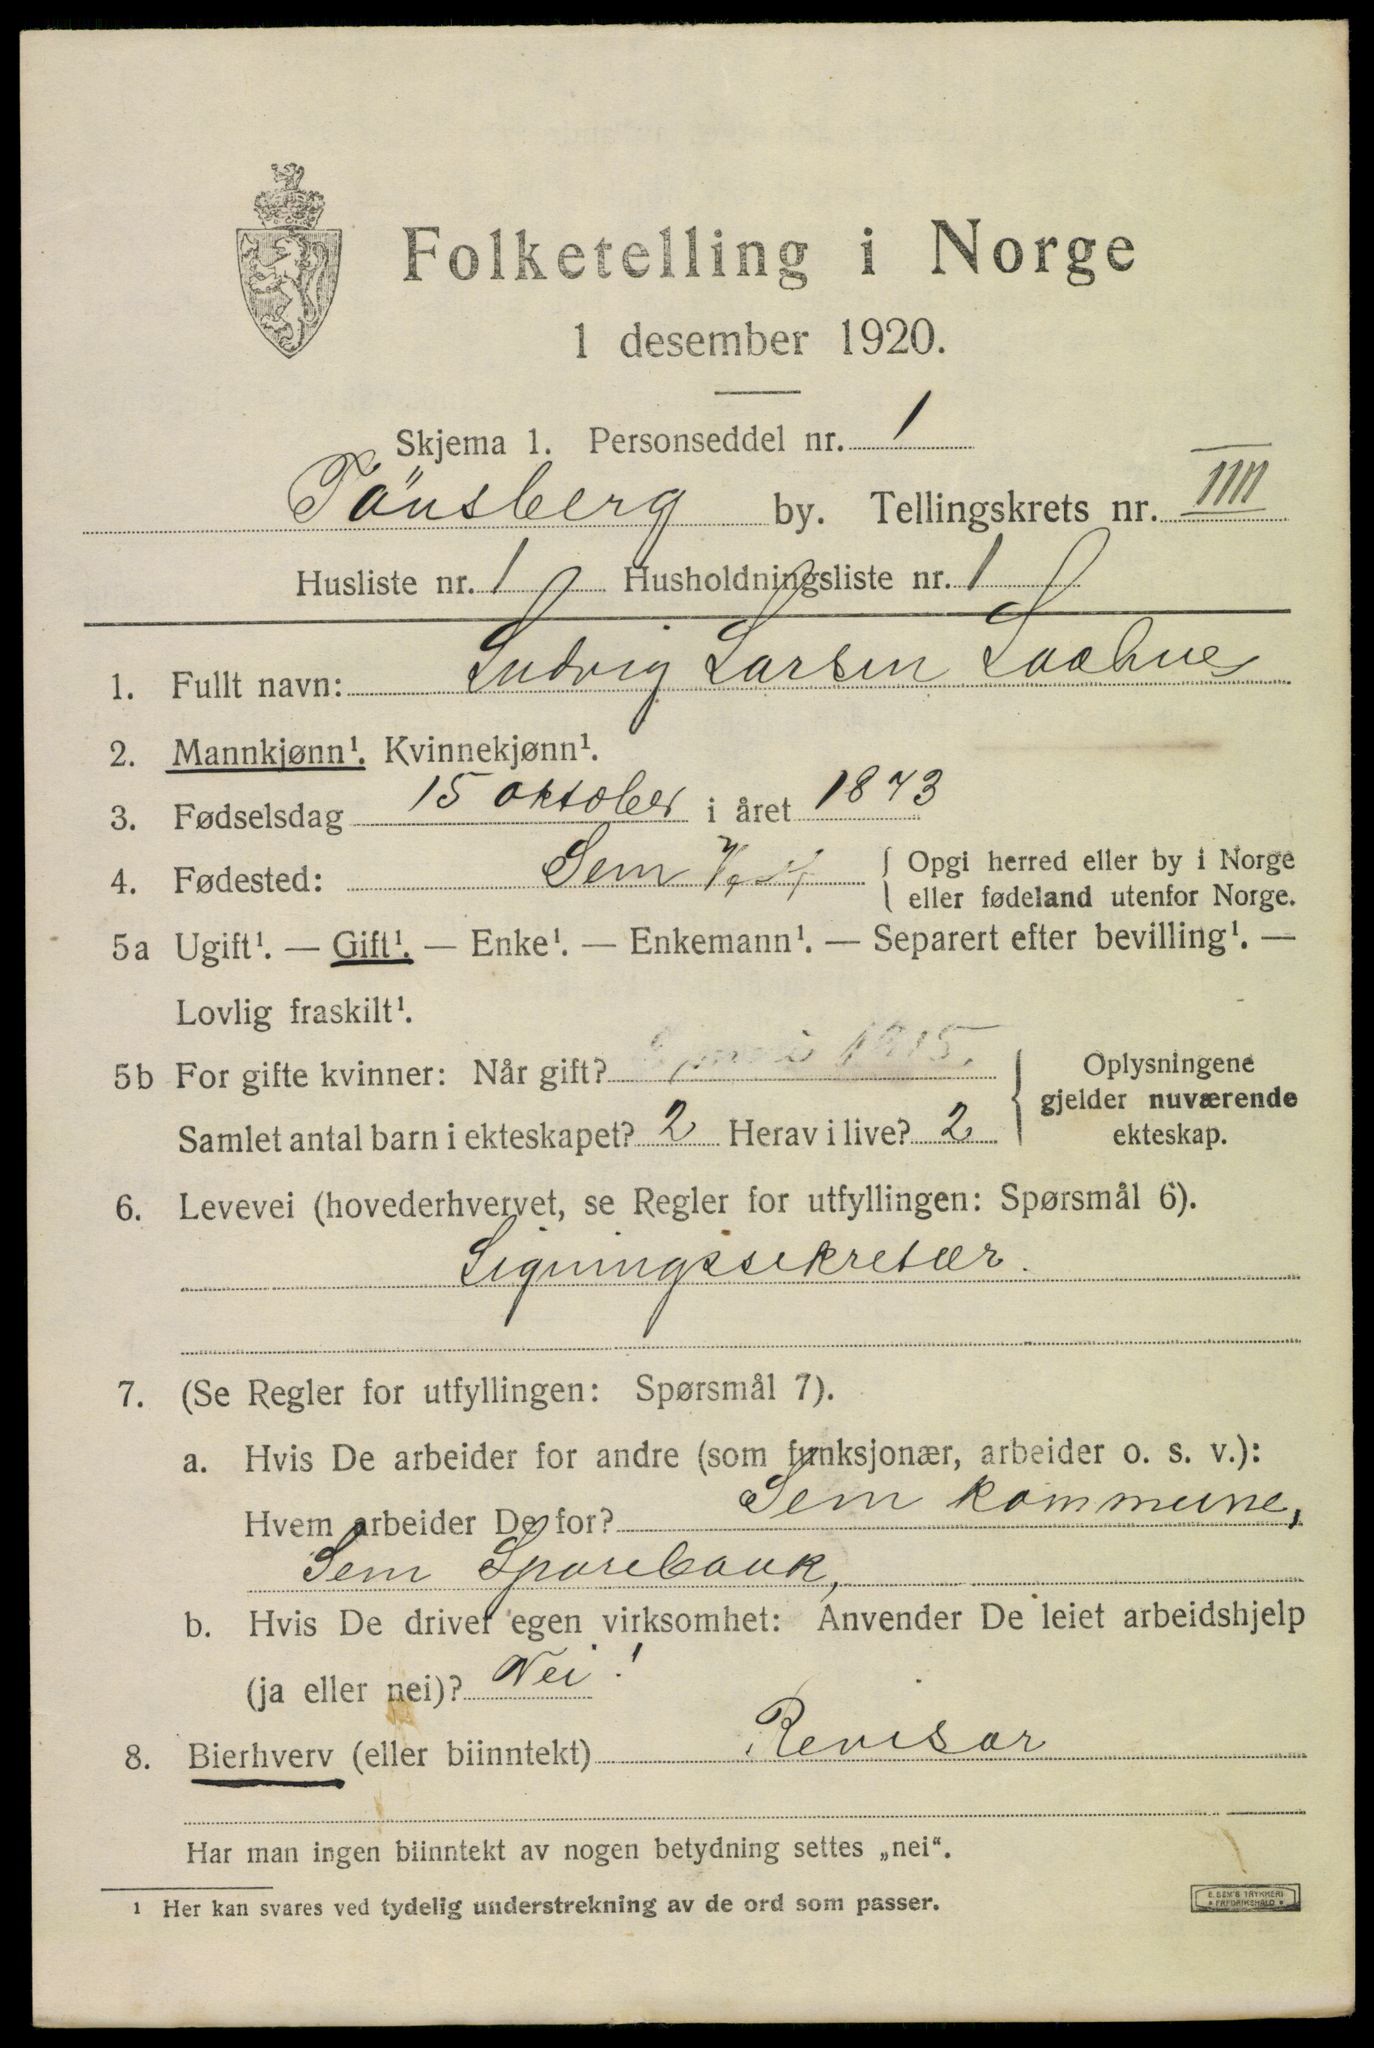 Folketelling i Norge
1 desember 1920.
Skjema 1. Personseddel nr. 1
Tönsberg by. Tellingskrets nr. IIIII
Husliste nr. 1 Husholdningsliste nr. 1
1. Fullt navn: Ludvig Larsen
2. Mannkjønn¹. Kvinnekjønn¹.
3. Fødselsdag 15 oktober i året 1873
4. Fødested: Sem { Opgi herred eller by i Norge
eller fødeland utenfor Norge.
5a Ugift¹. — Gift¹. — Enke¹. — Enkemann¹. — Separert efter bevilling¹. —
Lovlig fraskilt¹.
5b For gifte kvinner: Når gift? 1915. { Oplysningene
gjelder nuværende
ekteskap.
Samlet antal barn i ekteskapet? 2 Herav i live? 2
6. Levevei (hovederhvervet, se Regler for utfyllingen: Spørsmål 6).
Ligningssekretær.
7. (Se Regler for utfyllingen: Spørsmål 7).
a. Hvis De arbeider for andre (som funksjonær, arbeider o. s. v.):
Hvem arbeider De for? Sem kommune,
Sem Sparebank,
b. Hvis De driver egen virksomhet: Anvender De leiet arbeidshjelp
(ja eller nei)? Nei!
8. Bierhverv (eller biinntekt) Revisor
Har man ingen biinntekt av nogen betydning settes „nei“.
¹ Her kan svares ved tydelig understrekning av de ord som passer.
E. SEM'S TRYKKERI
FREDRIKSHALD